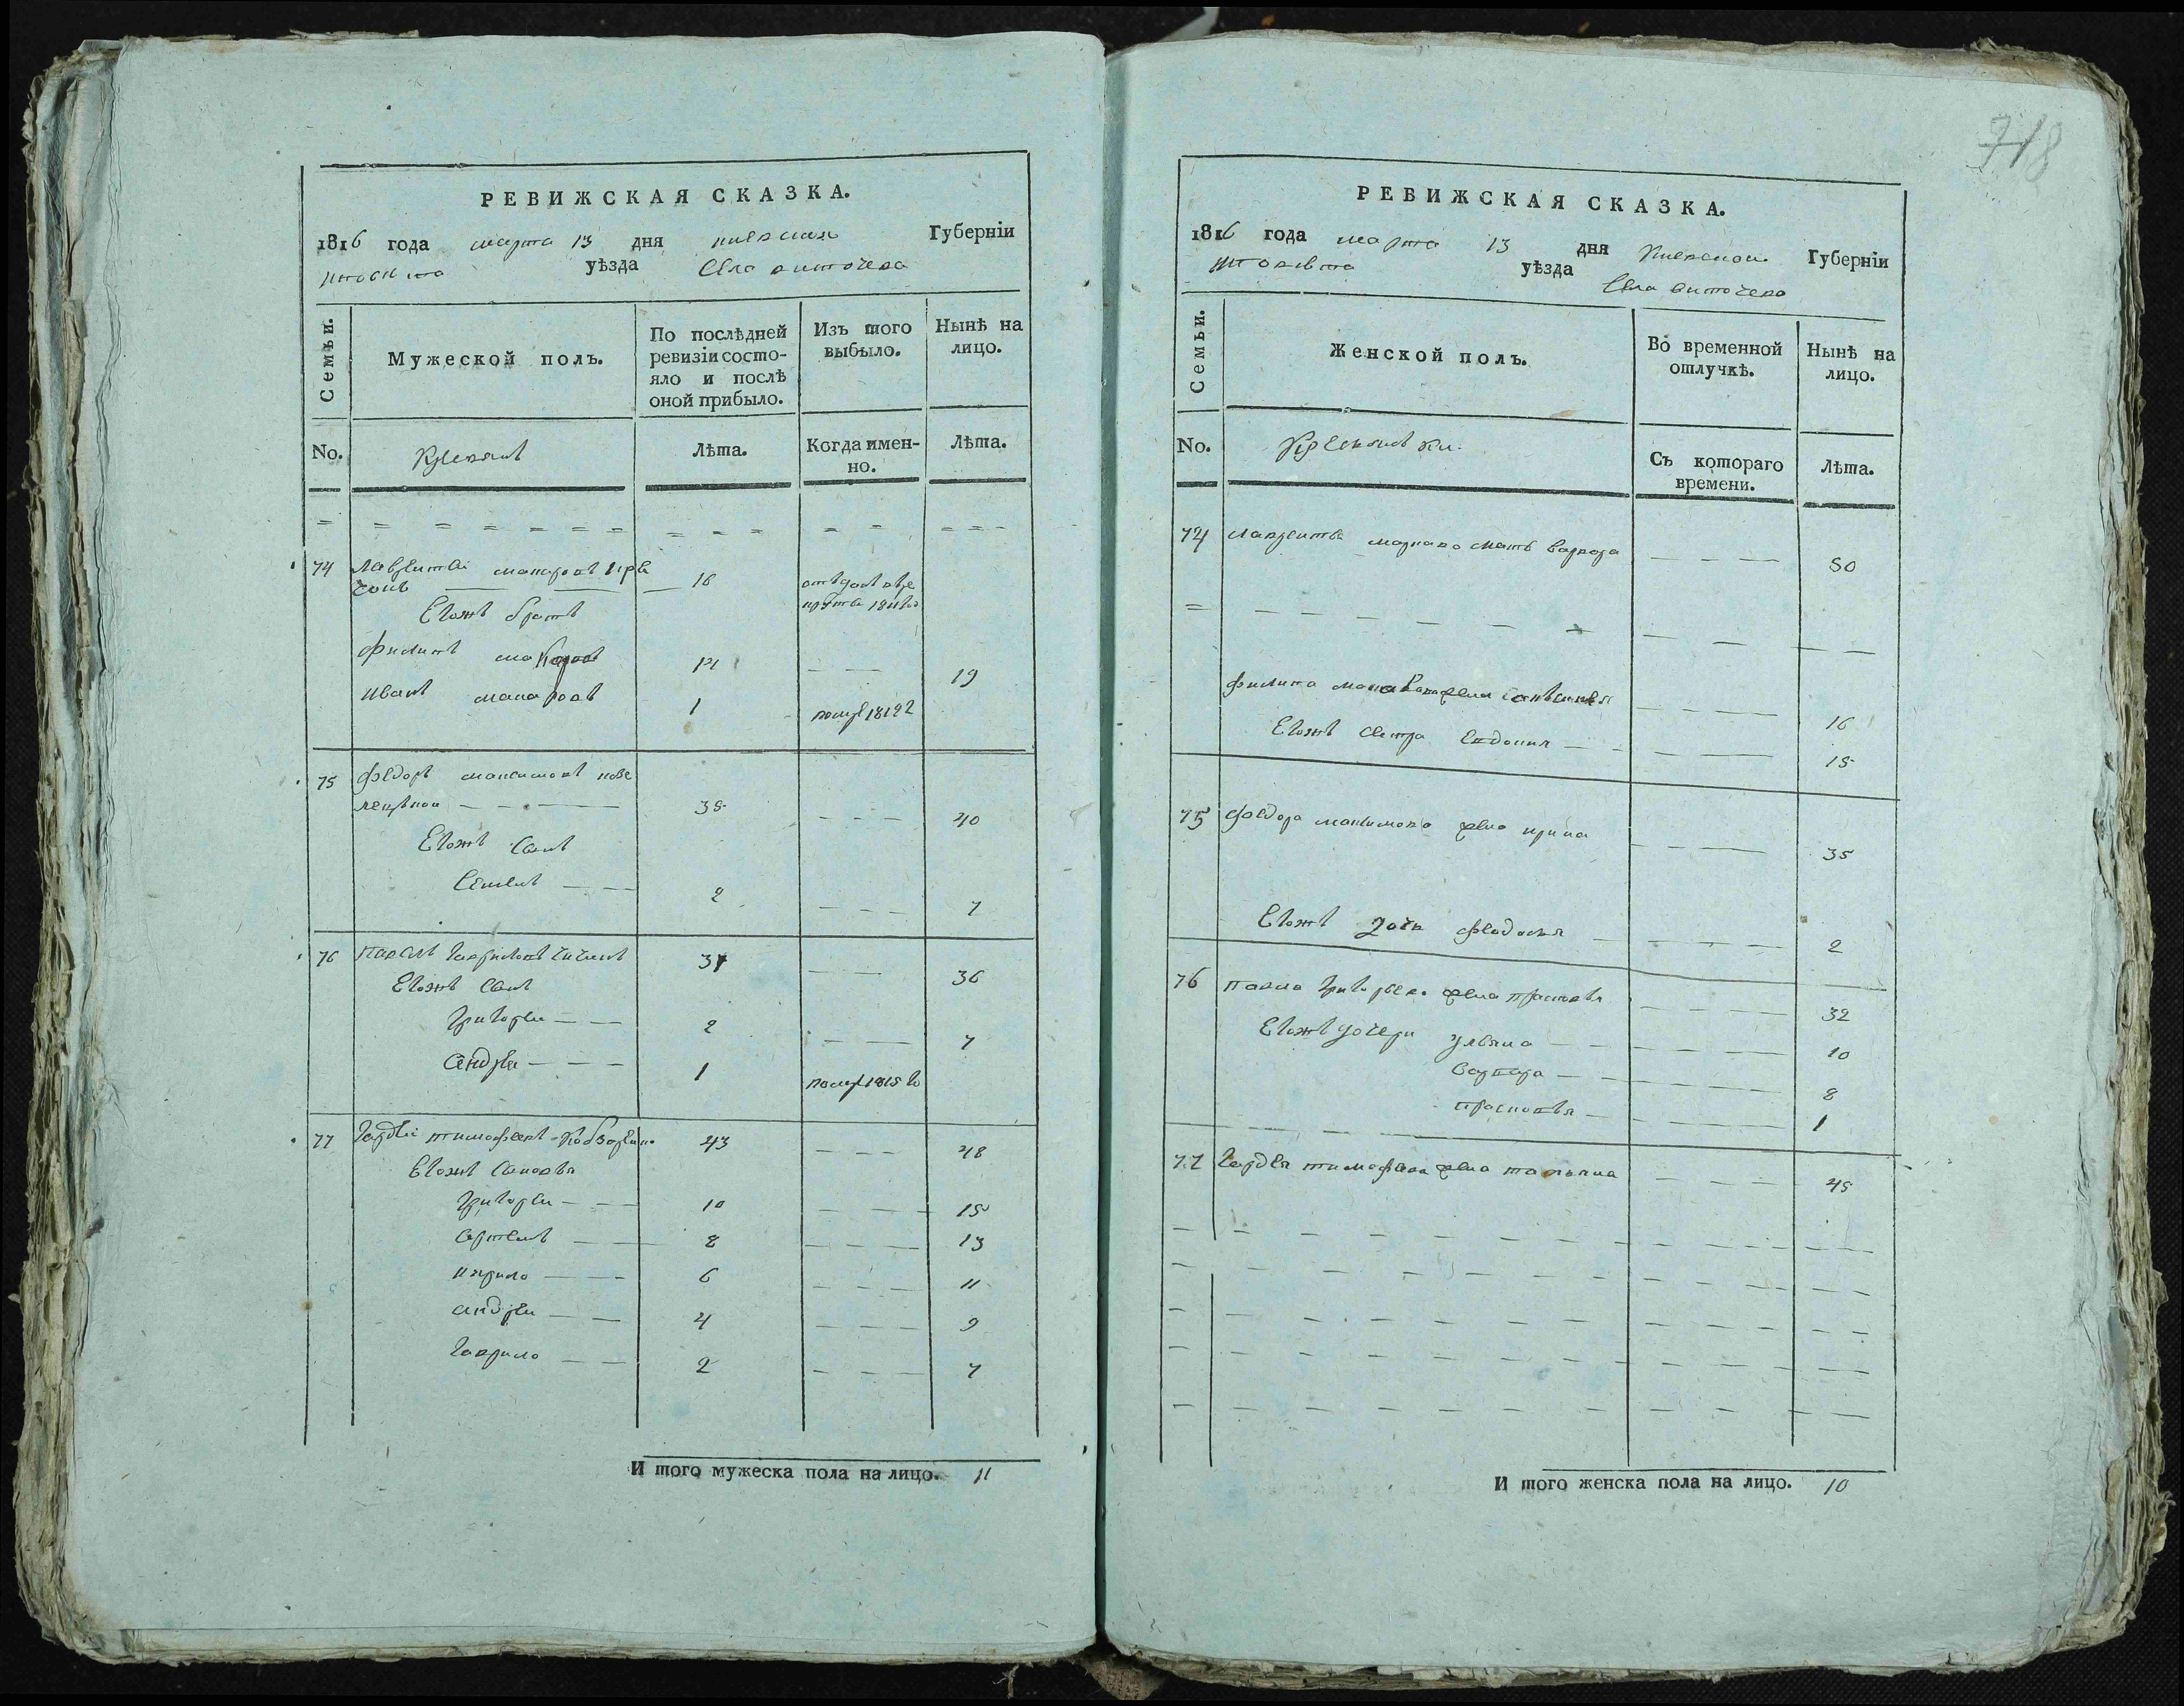 718
РЕВИЖСКАЯ СКАЗКА.
1816 года марта 13 дня киевской Губерніи
уѣзда Села витачева
Семьи.
Мужеской полъ.
По послѣдней
ревизіи состо-
яло и послѣ
оной прибыло.
Изъ того
выбыло.
Нынѣ на
лицо.
No.
Лѣта.
Когда имен-
но.
Лѣта.
74 Лаврентій макаровъ
16
Егожъ братъ
Филипъ макаровъ 14 19
иванъ макаровъ 1 1812
75 федоръ максимовъ
35 40
Егожъ Сынъ
Семенъ 2 7
76 павелъ 31 36
Егожъ Сынъ
григорей 2 7
Андрей 1 1815
77 гордей тимофеевъ 43 48
Егожъ Сыновья
григорей 10 15
Артемъ 8 13
кирило 6 11
андрей 4 9
гаврило 2 7
И того мужеска пола на лицо. 11
РЕВИЖСКАЯ СКАЗКА.
1816 года марта 13 дня Киевской Губерніи
уѣзда
Села витачева
Семьи.
Женской полъ.
Во временной
отлучкѣ.
Нынѣ на
лицо.
No.
Съ котораго
времени.
Лѣта.
74 лаврентія макарова мать варвара 50
филипа макарова жена 16
Егожъ Сестра Евдокия 15
75 федора максимова жена ирина 35
Егожъ дочь федосья 2
76 павла жена прасковья 32
Егожъ дочери ульяна 10
Варвара 8
прасковья 1
77 гордея тимофеева жена татьяна 45
И того женска пола на лицо. 10